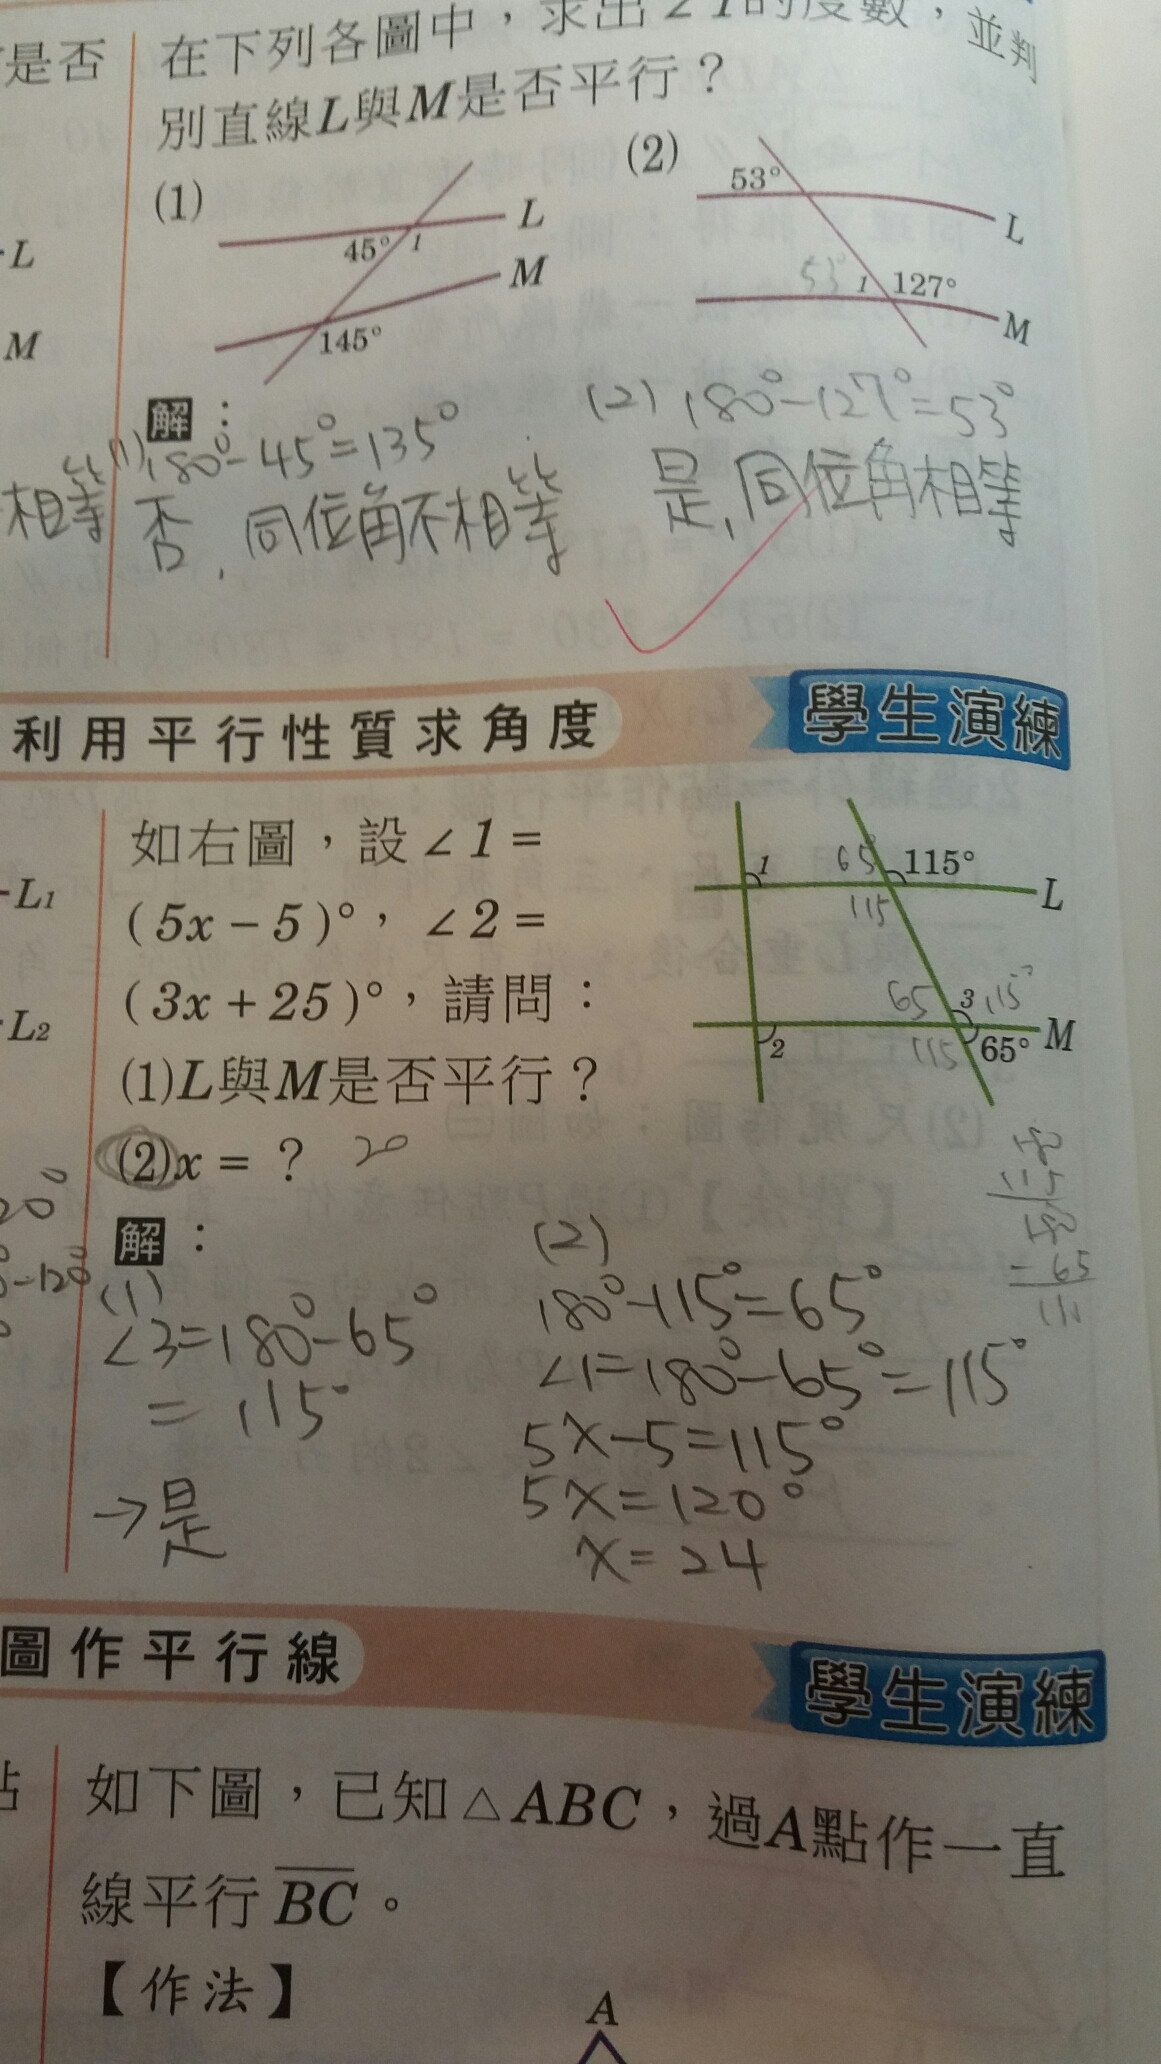 是否
在下列各圖中，求出∠1的度數，並判
別直線L與M是否平行？
(1)
L
45°
1
M
145°
(2)
53°
L
53°
1
127°
M
L
M
解：
(1)180°-45°=135°
否，同位角不相等
(2) 180°-127°=53°
是，同位角相等
相等
利用平行性質求角度
學生演練
如右圖，設∠1＝
(5x－5)°，∠2＝
(3x＋25)°，請問：
(1)L與M是否平行？
(2)x＝？ 20
1
65°
115°
L
115
65
3
115°
2
115
65°
M
L1
L2
解：
(1)
∠3=180°-65°
=115°
→是
(2)
180°-115°=65°
∠1=180°-65°=115°
5x-5=115°
5x=120°
x=24
20°
-120°
圖作平行線
學生演練
如下圖，已知△ABC，過A點作一直
線平行BC。
【作法】
A